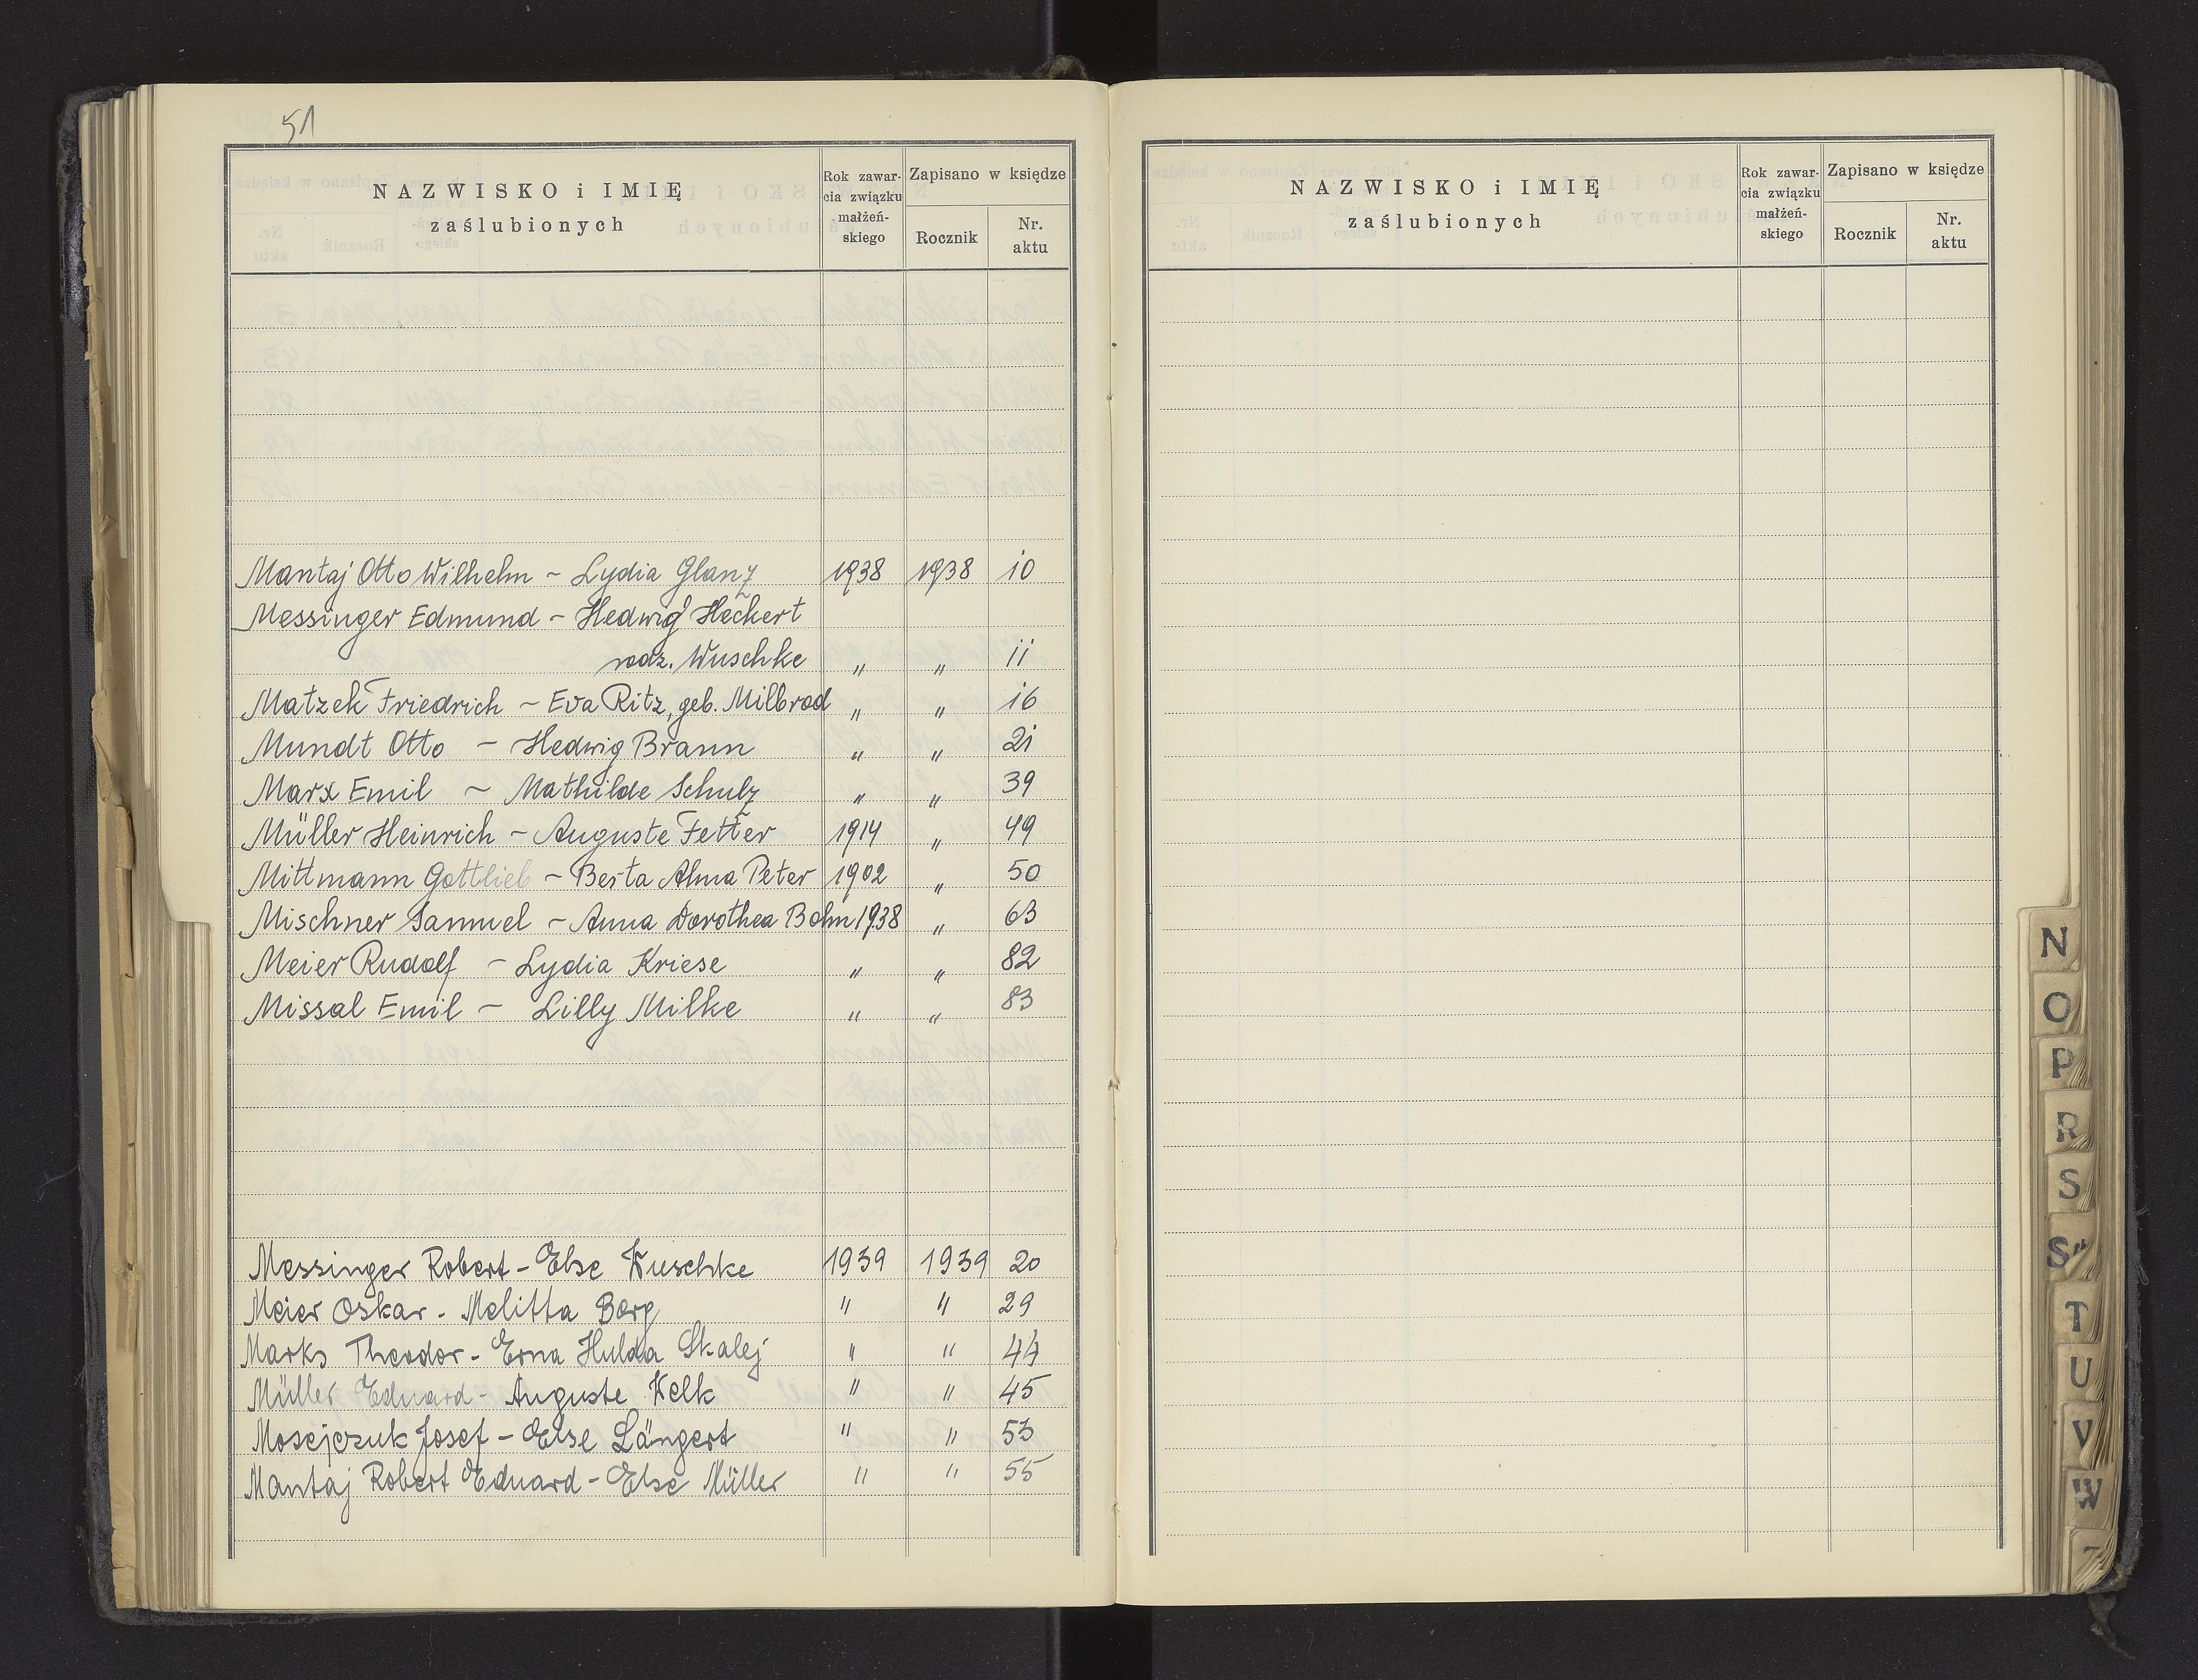 51
NAZWISKO i IMIĘ
zaślubionych
Rok zawar-
cia związku
małżeń-
skiego
Zapisano w księdze
Rocznik
Nr.
aktu
Mantaj Otto Wilhelm - Lydia Glanz 1938 1938 10
Messinger Edmund - Hedwig Heckert
rodz. Wuschke " " 11
Matzek Friedrich - Eva Ritz, geb. Milbrod " " 16
Mundt Otto - Hedwig Braun " " 21
Marx Emil - Mathilde Schulz " " 39
Müller Heinrich - Auguste Fetter 1914 " 49
Mittmann Gottlieb - Berta Alma Peter 1902 " 50
Mischner Samuel - Anna Dorothea Bohn 1938 " 63
Meier Rudolf - Lydia Kriese " " 82
Missal Emil - Lilly Milke " " 83
Messinger Robert - Else Wuschke 1939 1939 20
Meier Oskar - Melitta Berg " " 29
Marks Theodor - Erna Hulda Skalej " " 44
Müller Eduard - Auguste Welk " " 45
Mosejczuk Josef - Else Längert " " 53
Mantaj Robert Eduard - Else Müller " " 55
NAZWISKO i IMIĘ
zaślubionych
Rok zawar-
cia związku
małżeń-
skiego
Zapisano w księdze
Rocznik
Nr.
aktu
N
O
P
R
S
S"
T
U
V
W